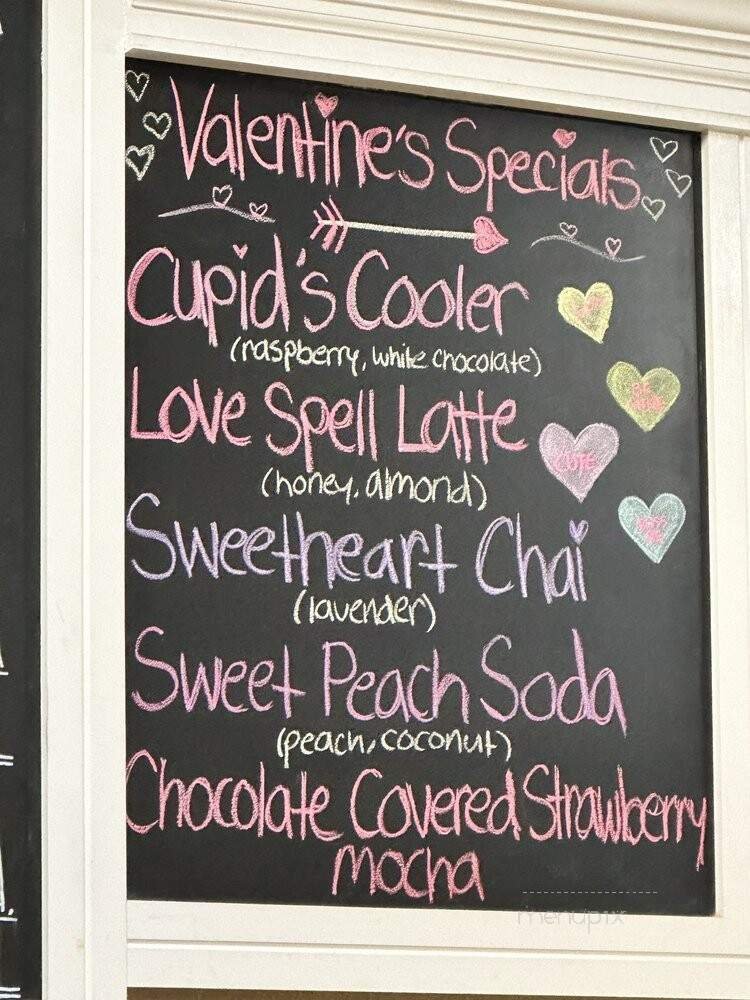 Valentine's Specials
Cupid's Cooler
(raspberry, white chocolate)
Love Spell Latte
(honey, almond)
CUTE
Sweetheart Chai
(lavender)
Sweet Peach Soda
(peach, coconut)
Chocolate Covered Strawberry
mocha
menupix